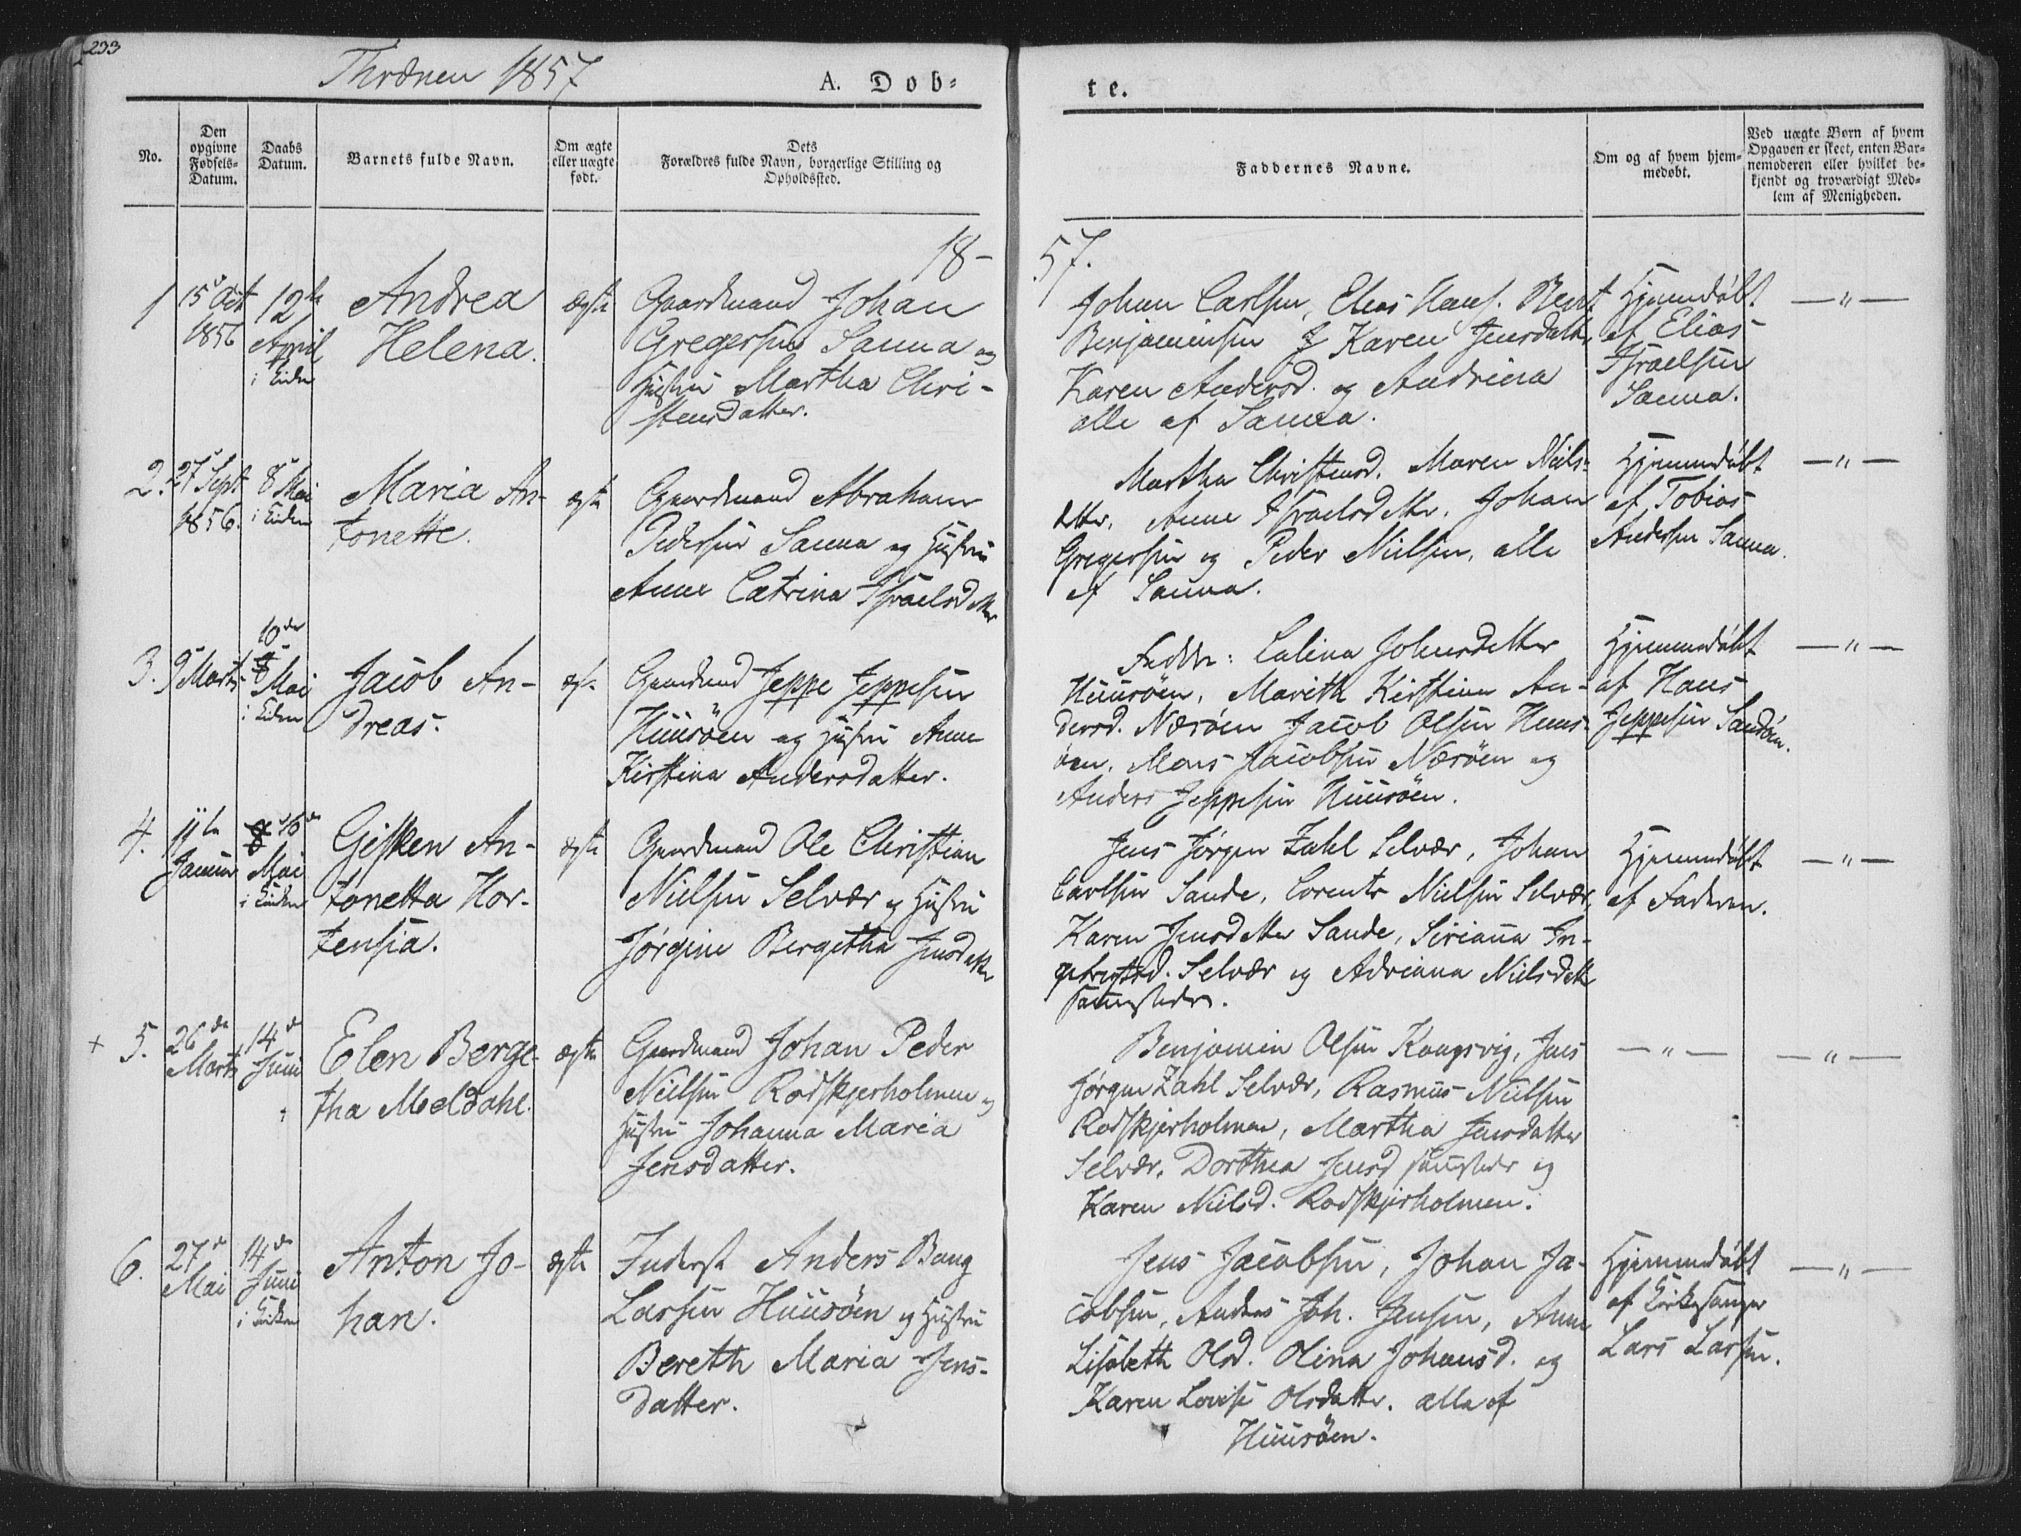 233
Thrænen 1857
A. Dob=
te.
No.
Den
opgivne
Fødsels=
Datum.
Daabs
Datum.
Barnets fulde Navn.
Om ægte
eller uægte
født.
Dets
Forældres fulde Navn, borgerlige Stilling og
Opholdssted.
Faddernes Navne.
Om og af hvem hjem=
medøbt.
Ved uægte Børn af hvem
Opgaven er skeet, enten Bar=
nemoderen eller hvilket be=
kjendt og troværdigt Med=
lem af Menigheden.
18-
57.
1
15 Oct
1856
12te
April
i Kirken
Andrea
Helena.
ægte
Gaardmand Johan
Gregersen Sanna og
Hustru Martha Chri-
stensdatter.
Johan Carlsen, Elias Hans. Bent
Benjaminsen Karen Jensdatter
Karen Andersd. og Andrina
alle af Sanna.
Hjemmedøbt
af Elias
Israelsen
Sanna.
— " —
2.
27 Sept
1856.
8 Mai
i Kirken
Maria An-
tonette.
ægte
Gaardmand Abraham
Pedersen Sanna og Hustru
Anne Catrina Israelsdatter
Martha Christensd. Maren Niels-
datter, Anne Israelsdatter, Johan
Gregersen og Peder Nielsen, alle
af Sanna.
Hjemmedøbt
af Tobias
Andersen Sanna.
— " —
3.
9 Marts
10de
Mai
i Kirken
Jacob An-
dreas.
ægte
Gaardmand Jeppe Jeppesen
Huusøen og Hustru Anne
Kirstina Andersdatter.
Fadder: Lalina Johnsdatter
Huusøen, Mareth Kirstina An-
dersd. Nærøen Jacob Olsen Huus-
øen, Mons Jacobsen Nærøen og
Anders Jeppesen Huusøen.
Hjemmedøbt
af Hans
Jeppesen Sandøen.
— " —
4.
11te
Januar
10de
Mai
i Kirken
Gisken An-
tonetta Hor-
tensia.
ægte
Gaardmand Ole Christian
Nielsen Selvær og Hustru
Jørgine Bergetha Jensdatter
Jens Jørgen Zahl Selvær, Johan
Carlsen Sande, Lorents Nielsen Selvær,
Karen Jensdatter Sande, Sirianna In-
gebrigtsd. Selvær og Adriana Nielsdatter
sammesteds.
Hjemmedøbt
af Faderen.
— " —
+ 5.
26de
Marts
14de
Juni
Elen Berge-
tha Meldahl.
ægte
Gaardmand Johan Peder
Nielsen Rødskjerholmen og
Hustru Johanna Maria
Jensdatter.
Benjamin Olsen Kaagsvig, Jens
Jørgen Zahl Selvær, Rasmus Nielsen
Rødskjerholmen, Martha Jensdatter
Selvær, Dorthea Jensd sammesteds og
Karen Nielsd. Rødskjerholmen.
— " —
— " —
6.
27de
Mai
14de
Juni
i Kirken
Anton Jo-
han.
ægte
Inderst Anders Bang
Larsen Huusøen og Hustru
Bereth Maria Jens-
datter.
Jens Jacobsen, Johan Ja-
cobsen, Anders Joh. Jensen, Anne
Lisabeth Olsd. Olina Johansd. og
Karen Lovise Olsdatter. alle af
Huusøen.
Hjemmedøbt
af Kirkesanger
Lars Larsen.
— " —